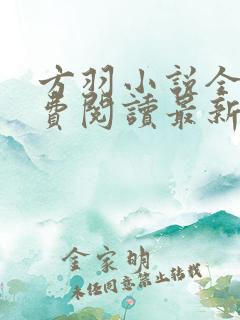 方羽小說全
費閱讀最新
金家明
未经同意禁止转载